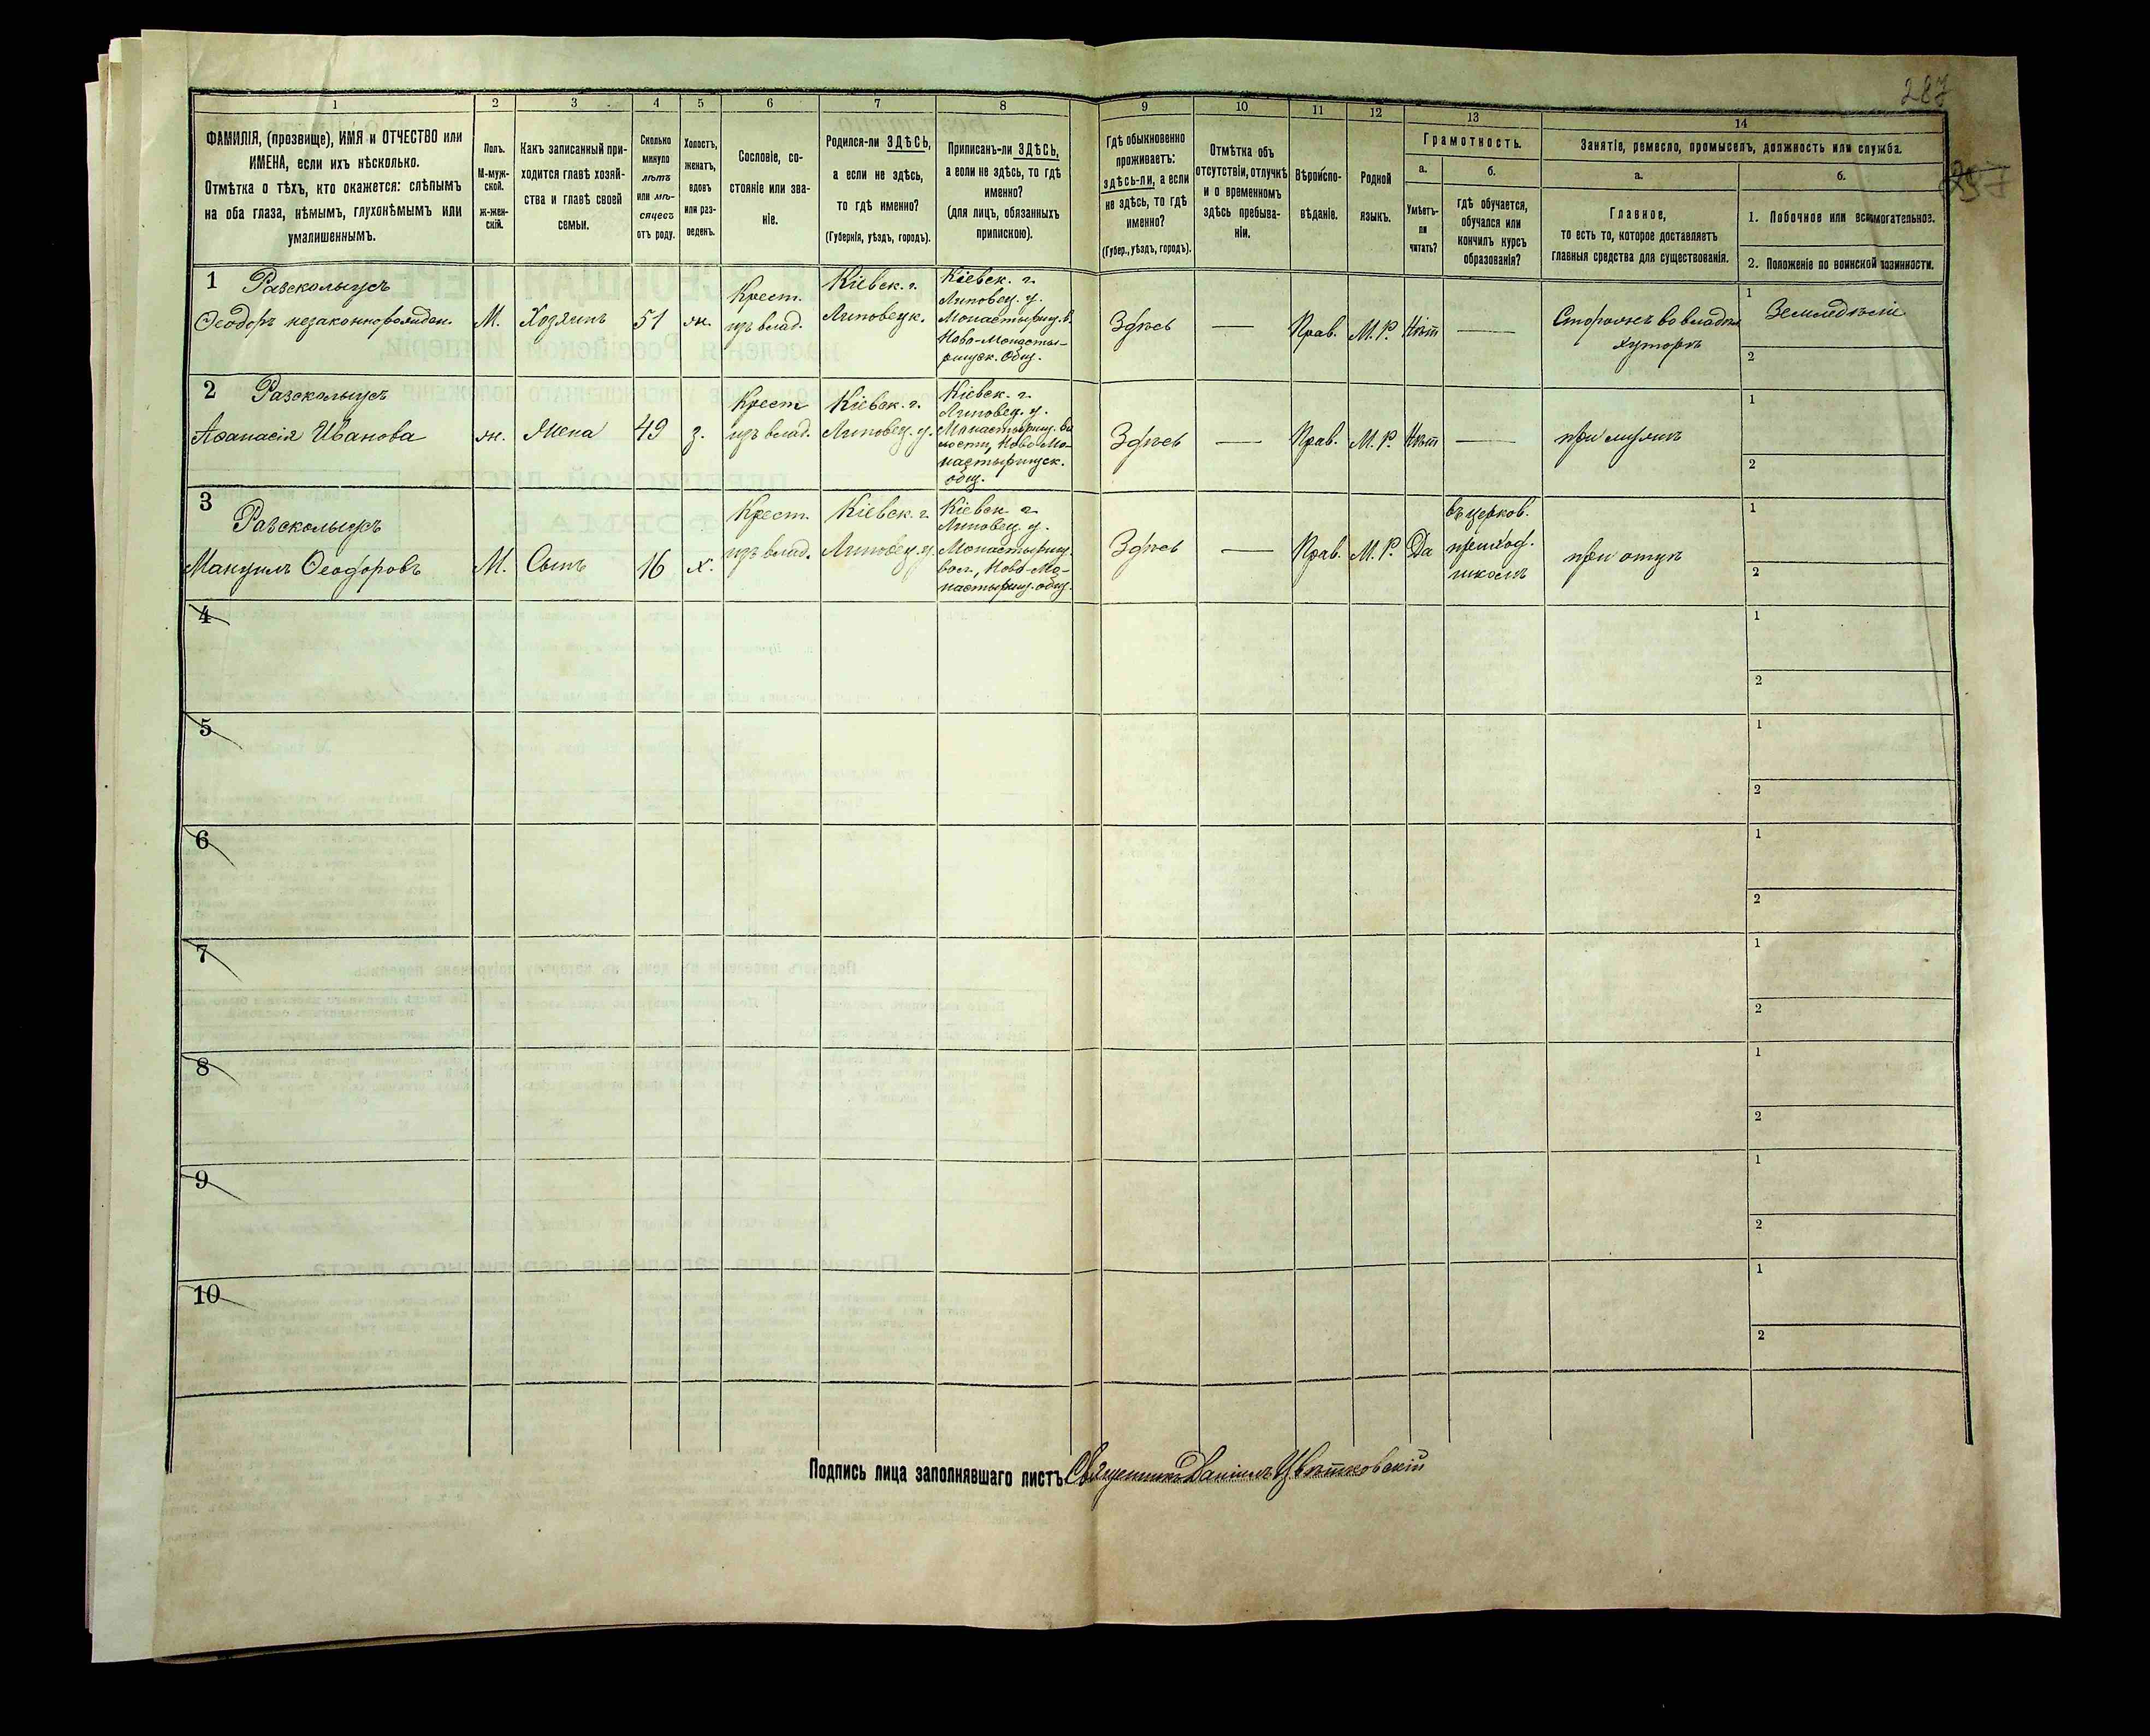 287
297
1 2 3 4 5 6 7 8 9 10 11 12 13 14
ФАМИЛІЯ, (прозвище), ИМЯ и ОТЧЕСТВО или
ИМЕНА, если ихъ нѣсколько.
Отмѣтка о тѣхъ, кто окажется: слѣпымъ
на оба глаза, нѣмымъ, глухонѣмымъ или
умалишеннымъ.
Полъ.
М-муж-
ской.
Ж-жен-
скій.
Какъ записанный при-
ходится главѣ хозяй-
ства и главѣ своей
семьи.
Сколько
минуло
лѣтъ
или мѣ-
сяцевъ
отъ роду.
Холостъ,
женатъ,
вдовъ
или раз-
веденъ.
Сословіе, со-
стояніе или зва-
ніе.
Родился-ли ЗДѢСЬ,
а если не здѣсь,
то гдѣ именно?
(Губернія, уѣздъ, городъ).
Приписанъ-ли ЗДѢСЬ,
а если не здѣсь, то гдѣ
именно?
(для лицъ, обязанныхъ
припискою).
Гдѣ обыкновенно
проживаетъ:
здѣсь-ли, а если
не здѣсь, то гдѣ
именно?
(Губер., уѣздъ, городъ).
Отмѣтка объ
отсутствіи, отлучкѣ
и о временномъ
здѣсь пребыва-
ніи.
Вѣроиспо-
вѣданіе.
Родной
языкъ.
Грамотность.
а.
Умѣетъ-
ли
читать?
б.
гдѣ обучается,
обучался или
кончилъ курсъ
образованія?
Занятіе, ремесло, промыселъ, должность или служба.
а.
Главное,
то есть то, которое доставляетъ
главныя средства для существованія.
б.
1. Побочное или вспомогательное.
2. Положеніе по воинской повинности.
1 Разсколыусъ
Ѳеодоръ незаконнорожден.
М.
Хозяинъ
51
ж.
Крест.
изъ влад.
Кіевск. г.
Липовецк.
Кіевск. г.
Липовец. у.
Монастырищ. в.
Ново-Монасты-
рищск. Общ.
Здѣсь
—
Прав.
М. Р.
Нѣт
—
Сторожъ во владѣ
хуторѣ
1 Земледѣліе
2
2 Разсколыусъ
Аѳанасія Иванова
ж.
Жена
49
з.
Крест
изъ влад.
Кіевск. г.
Липовец. у.
Кіевск. г.
Липовец. у.
Монастырищ. во
лости, Ново-Мо-
настырищск.
общ.
Здѣсь
—
Прав.
М. Р.
Нѣт
—
при мужѣ
1
2
3 Разсколыусъ
Мануилъ Ѳеодоровъ
М.
Сынъ
16
х.
Крест.
изъ влад.
Кіевск. г.
Липовец. у.
Кіевск. г.
Липовец. у.
Монастырищ.
вол., Ново-Мо-
настырищ. общ.
Здѣсь
—
Прав.
М. Р.
Да
въ церков.
приход.
школѣ
при отцѣ
1
2
4
1
2
5
1
2
6
1
2
7
1
2
8
1
2
9
1
2
10
1
2
Подпись лица заполнявшаго листъ: Священникъ Даніилъ Цвѣтковскій